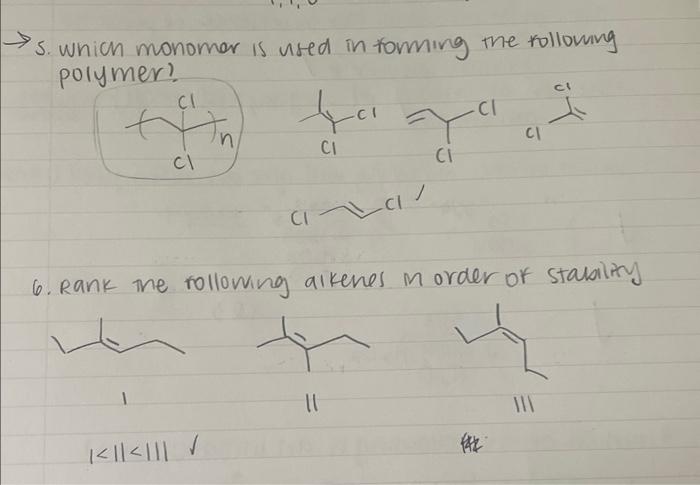 → 5. Which monomer is used in forming the following
polymer?
Cl
n
Cl
Cl
Cl
Cl
Cl
Cl
Cl
Cl Cl ✓
6. Rank the following alkenes in order of stability
I II III
I<II<III ✓